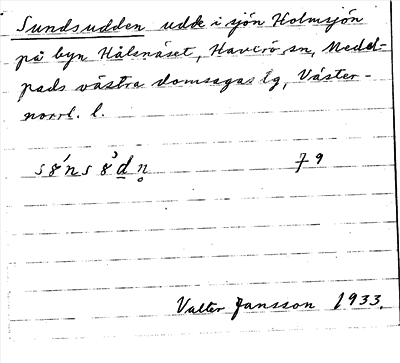 Sundsudden udde i sjön Holmsjön
på byn Hålsnäset, Haverö sn, Medel-
pads västra domsagas tg, Väster-
norrl. l.
79
Valter Jansson 1933.